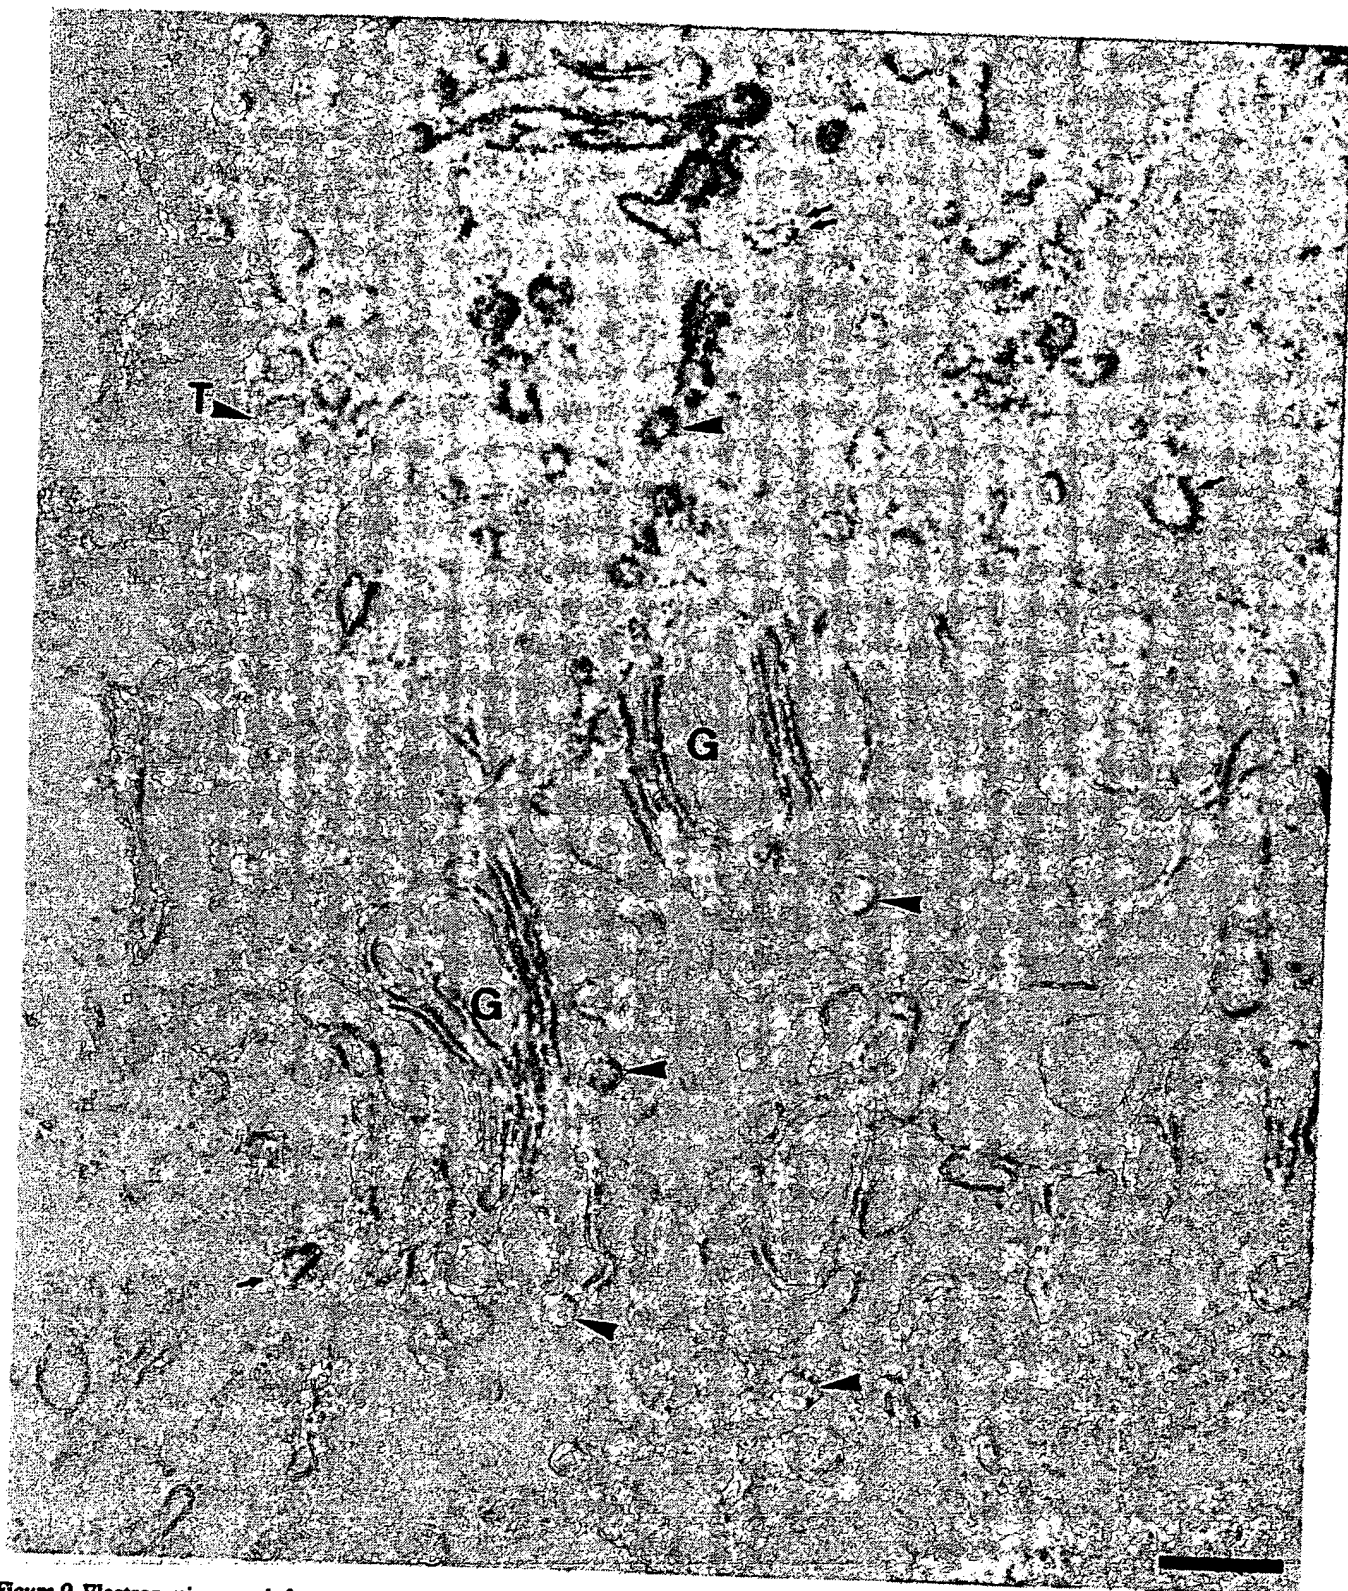 T
G
G
Figure 9 Electron